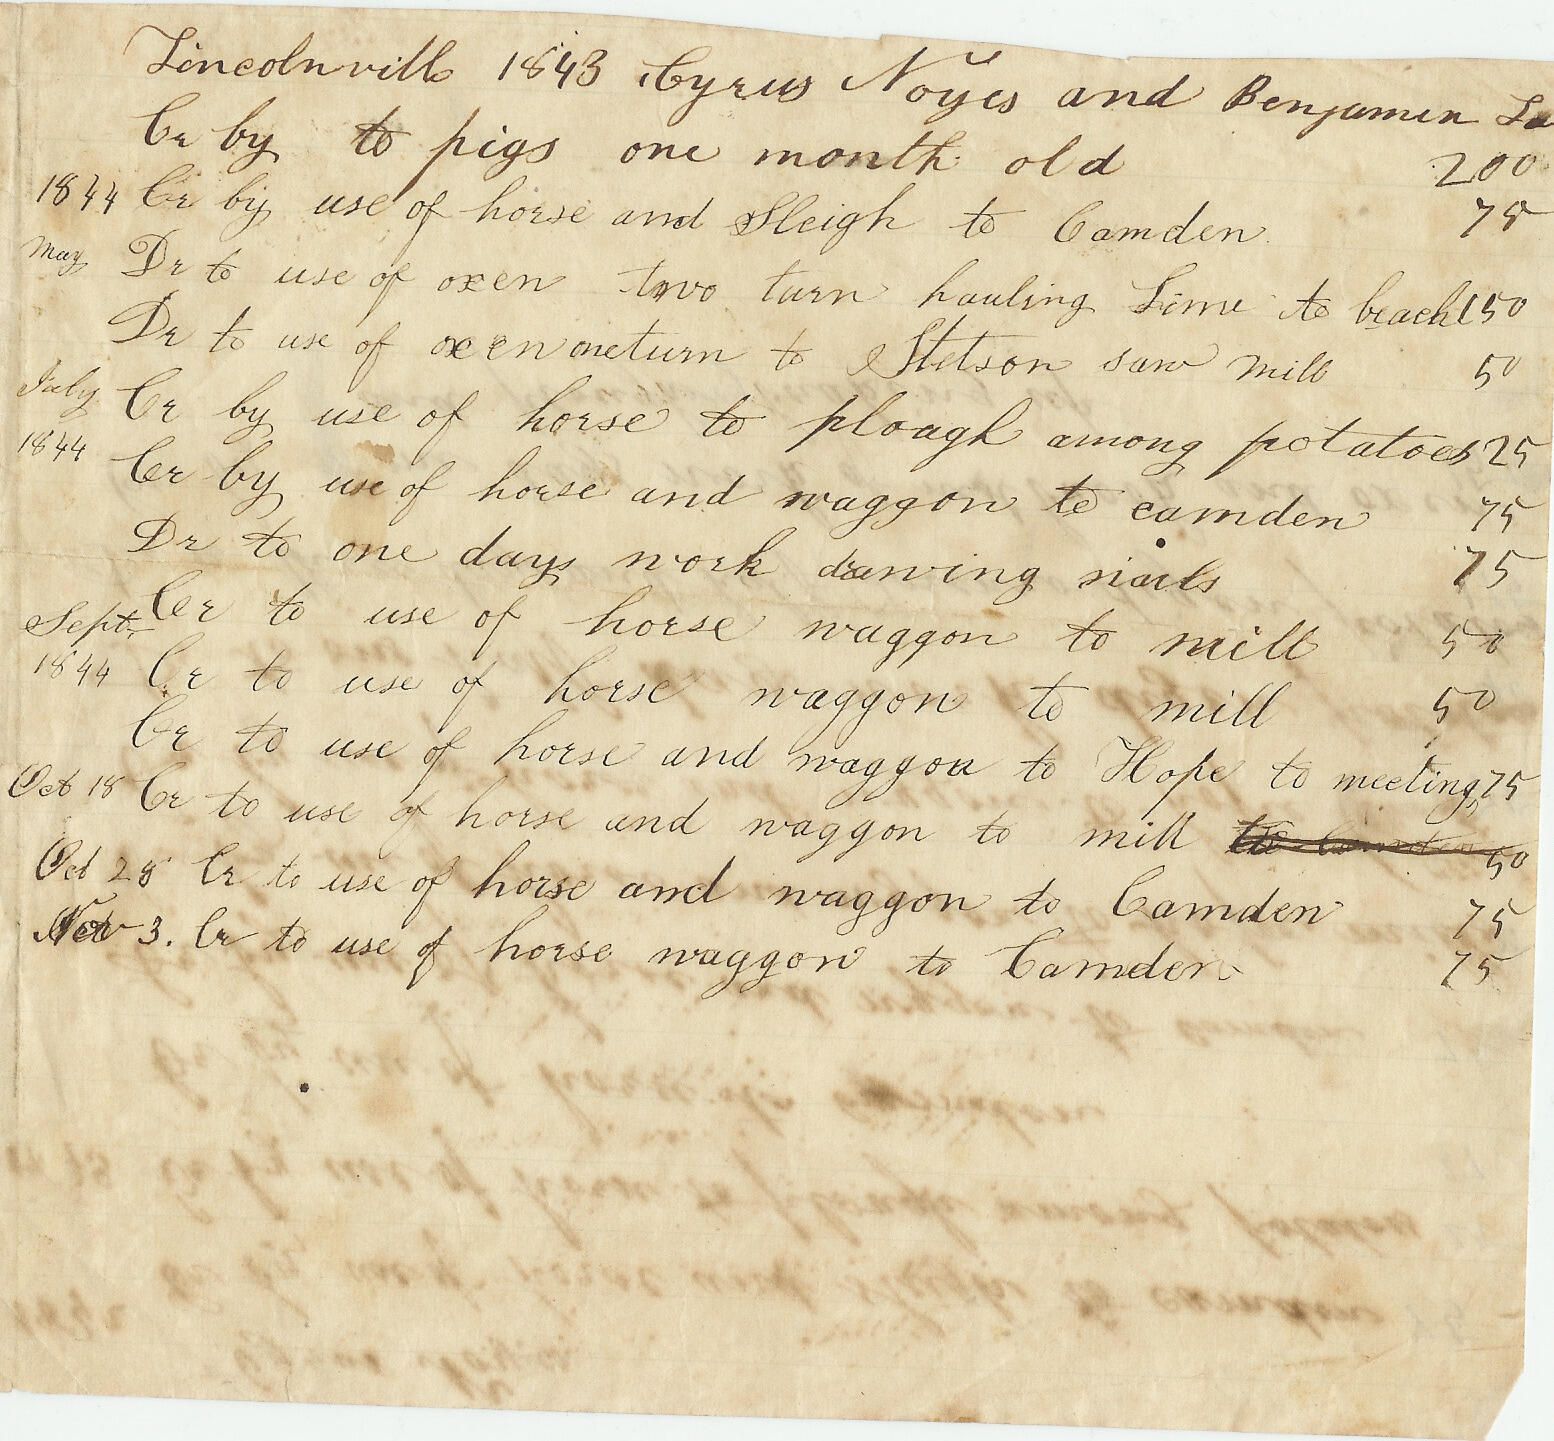 Lincolnvill 1843 Cyrus Noyes and Benjamen
Cr by to pigs one month old 200
1844 Cr by use of horse and Sleigh to Camden 75
May Dr to use of oxen two turn hauling Lime to beach 150
Dr to use of oxen one turn to Stetson saw mill 50
July Cr by use of horse to plough among potatoes 25
1844 Cr by use of horse and waggon to camden 75
Dr to one days work drawing nails 75
Sept Cr to use of horse waggon to mill 50
1844 Cr to use of horse waggon to mill 50
Cr to use of horse and waggon to Hope to meeting 75
Oct 18 Cr to use of horse and waggon to mill to Camden 50
Oct 28 Cr to use of horse and waggon to Camden 75
Nov 3. Cr to use of horse waggon to Camden 75